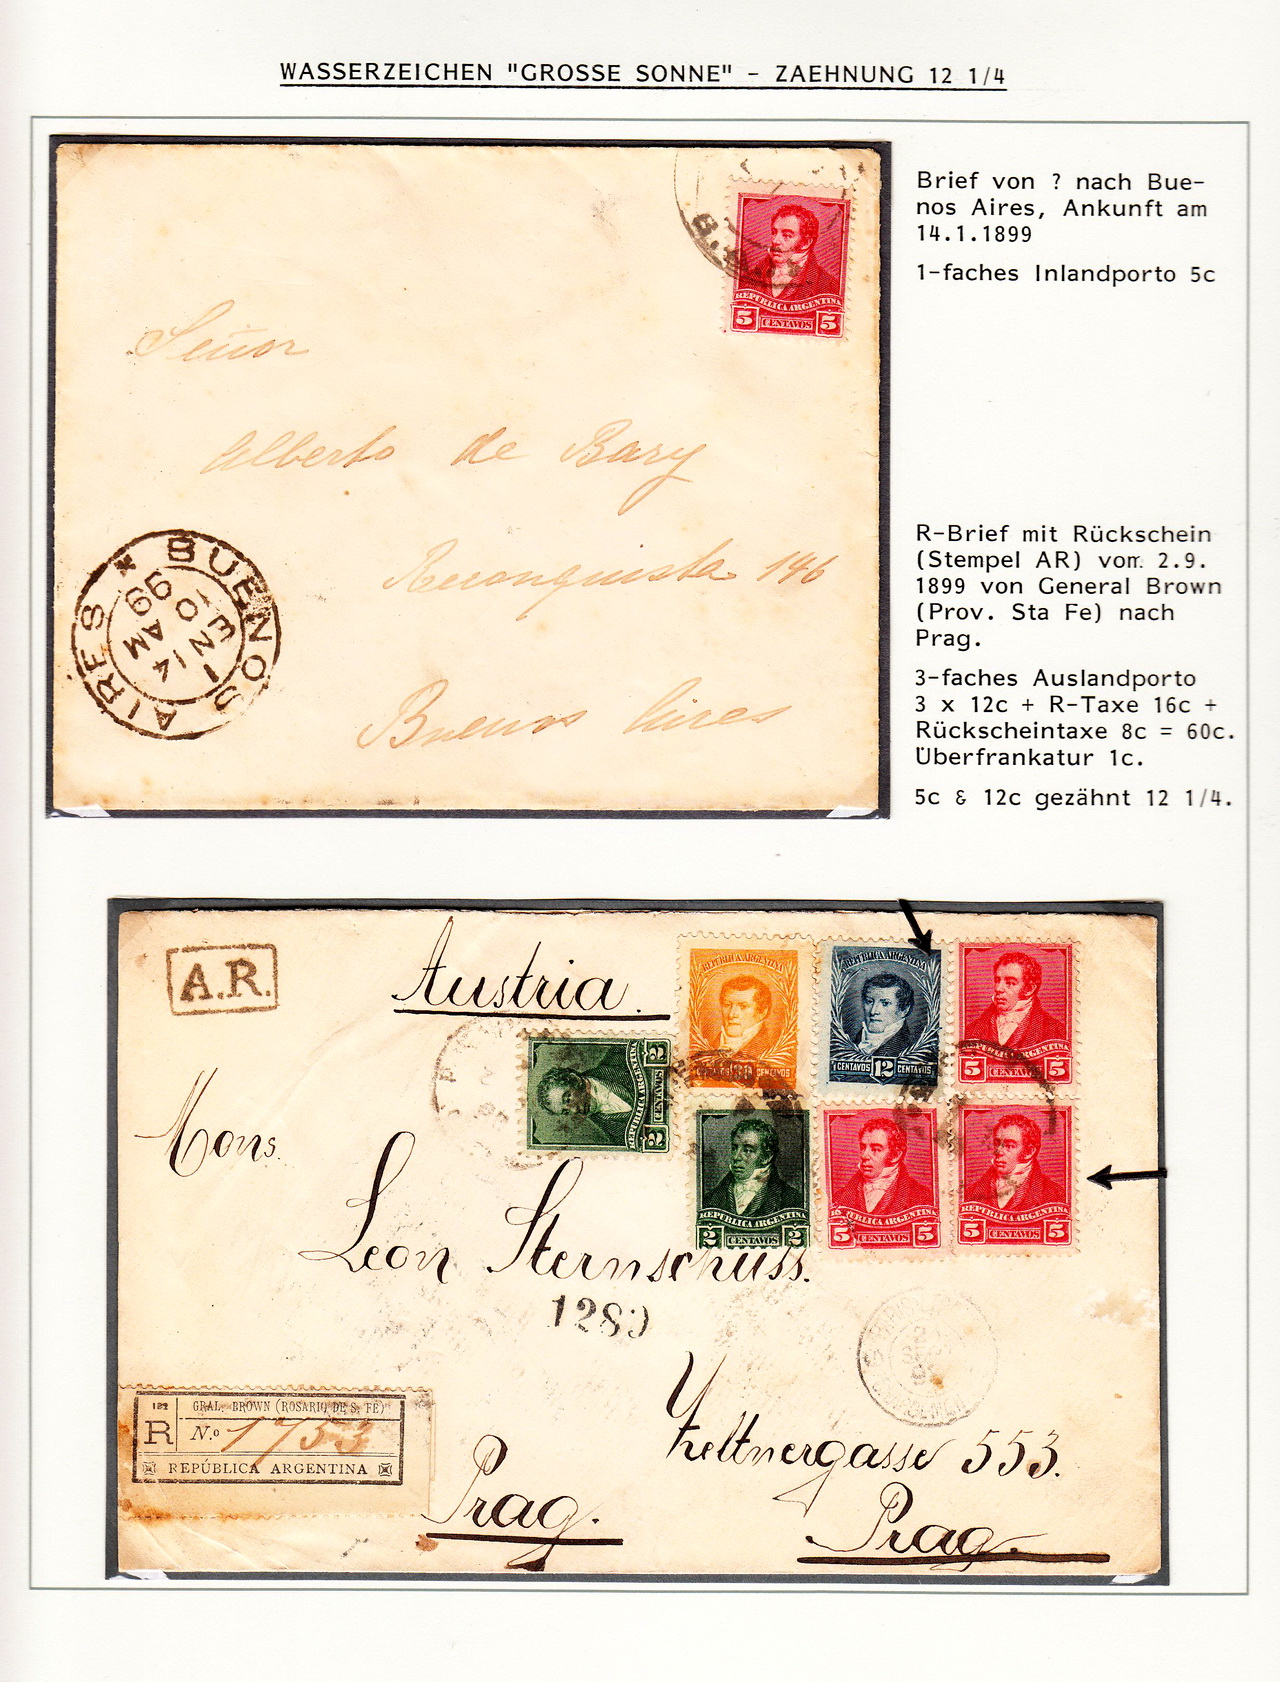 WASSERZEICHEN "GROSSE SONNE" - ZAEHNUNG 12 1/4
Brief von ? nach Bue-
nos Aires, Ankunft am
14.1.1899
1-faches Inlandporto 5c
REPUBLICA ARGENTINA
5 CENTAVOS 5
Señor
Alberto de Bary
Reconquista 146
Buenos Aires
BUENOS AIRES *
14 AM
ENO
99
R-Brief mit Rückschein
(Stempel AR) vom 2.9.
1899 von General Brown
(Prov. Sta Fe) nach
Prag.
3-faches Auslandporto
3 x 12c + R-Taxe 16c +
Rückscheintaxe 8c = 60c.
Überfrankatur 1c.
5c & 12c gezähnt 12 1/4.
A.R.
Austria.
REPUBLICA ARGENTINA
REPUBLICA ARGENTINA
CENTAVOS 12 CENTAVOS
REPUBLICA ARGENTINA
5 CENTAVOS 5
REPUBLICA ARGENTINA
2 CENTAVOS 2
REPUBLICA ARGENTINA
2 CENTAVOS 2
REPUBLICA ARGENTINA
5 CENTAVOS 5
REPUBLICA ARGENTINA
5 CENTAVOS 5
Mons.
Leon Sternschuss.
1280
Zeltnergasse 553.
Prag.
Prag.
121 GRAL. BROWN (ROSARIO DE S. FÉ)
R N.o 1753
REPÚBLICA ARGENTINA